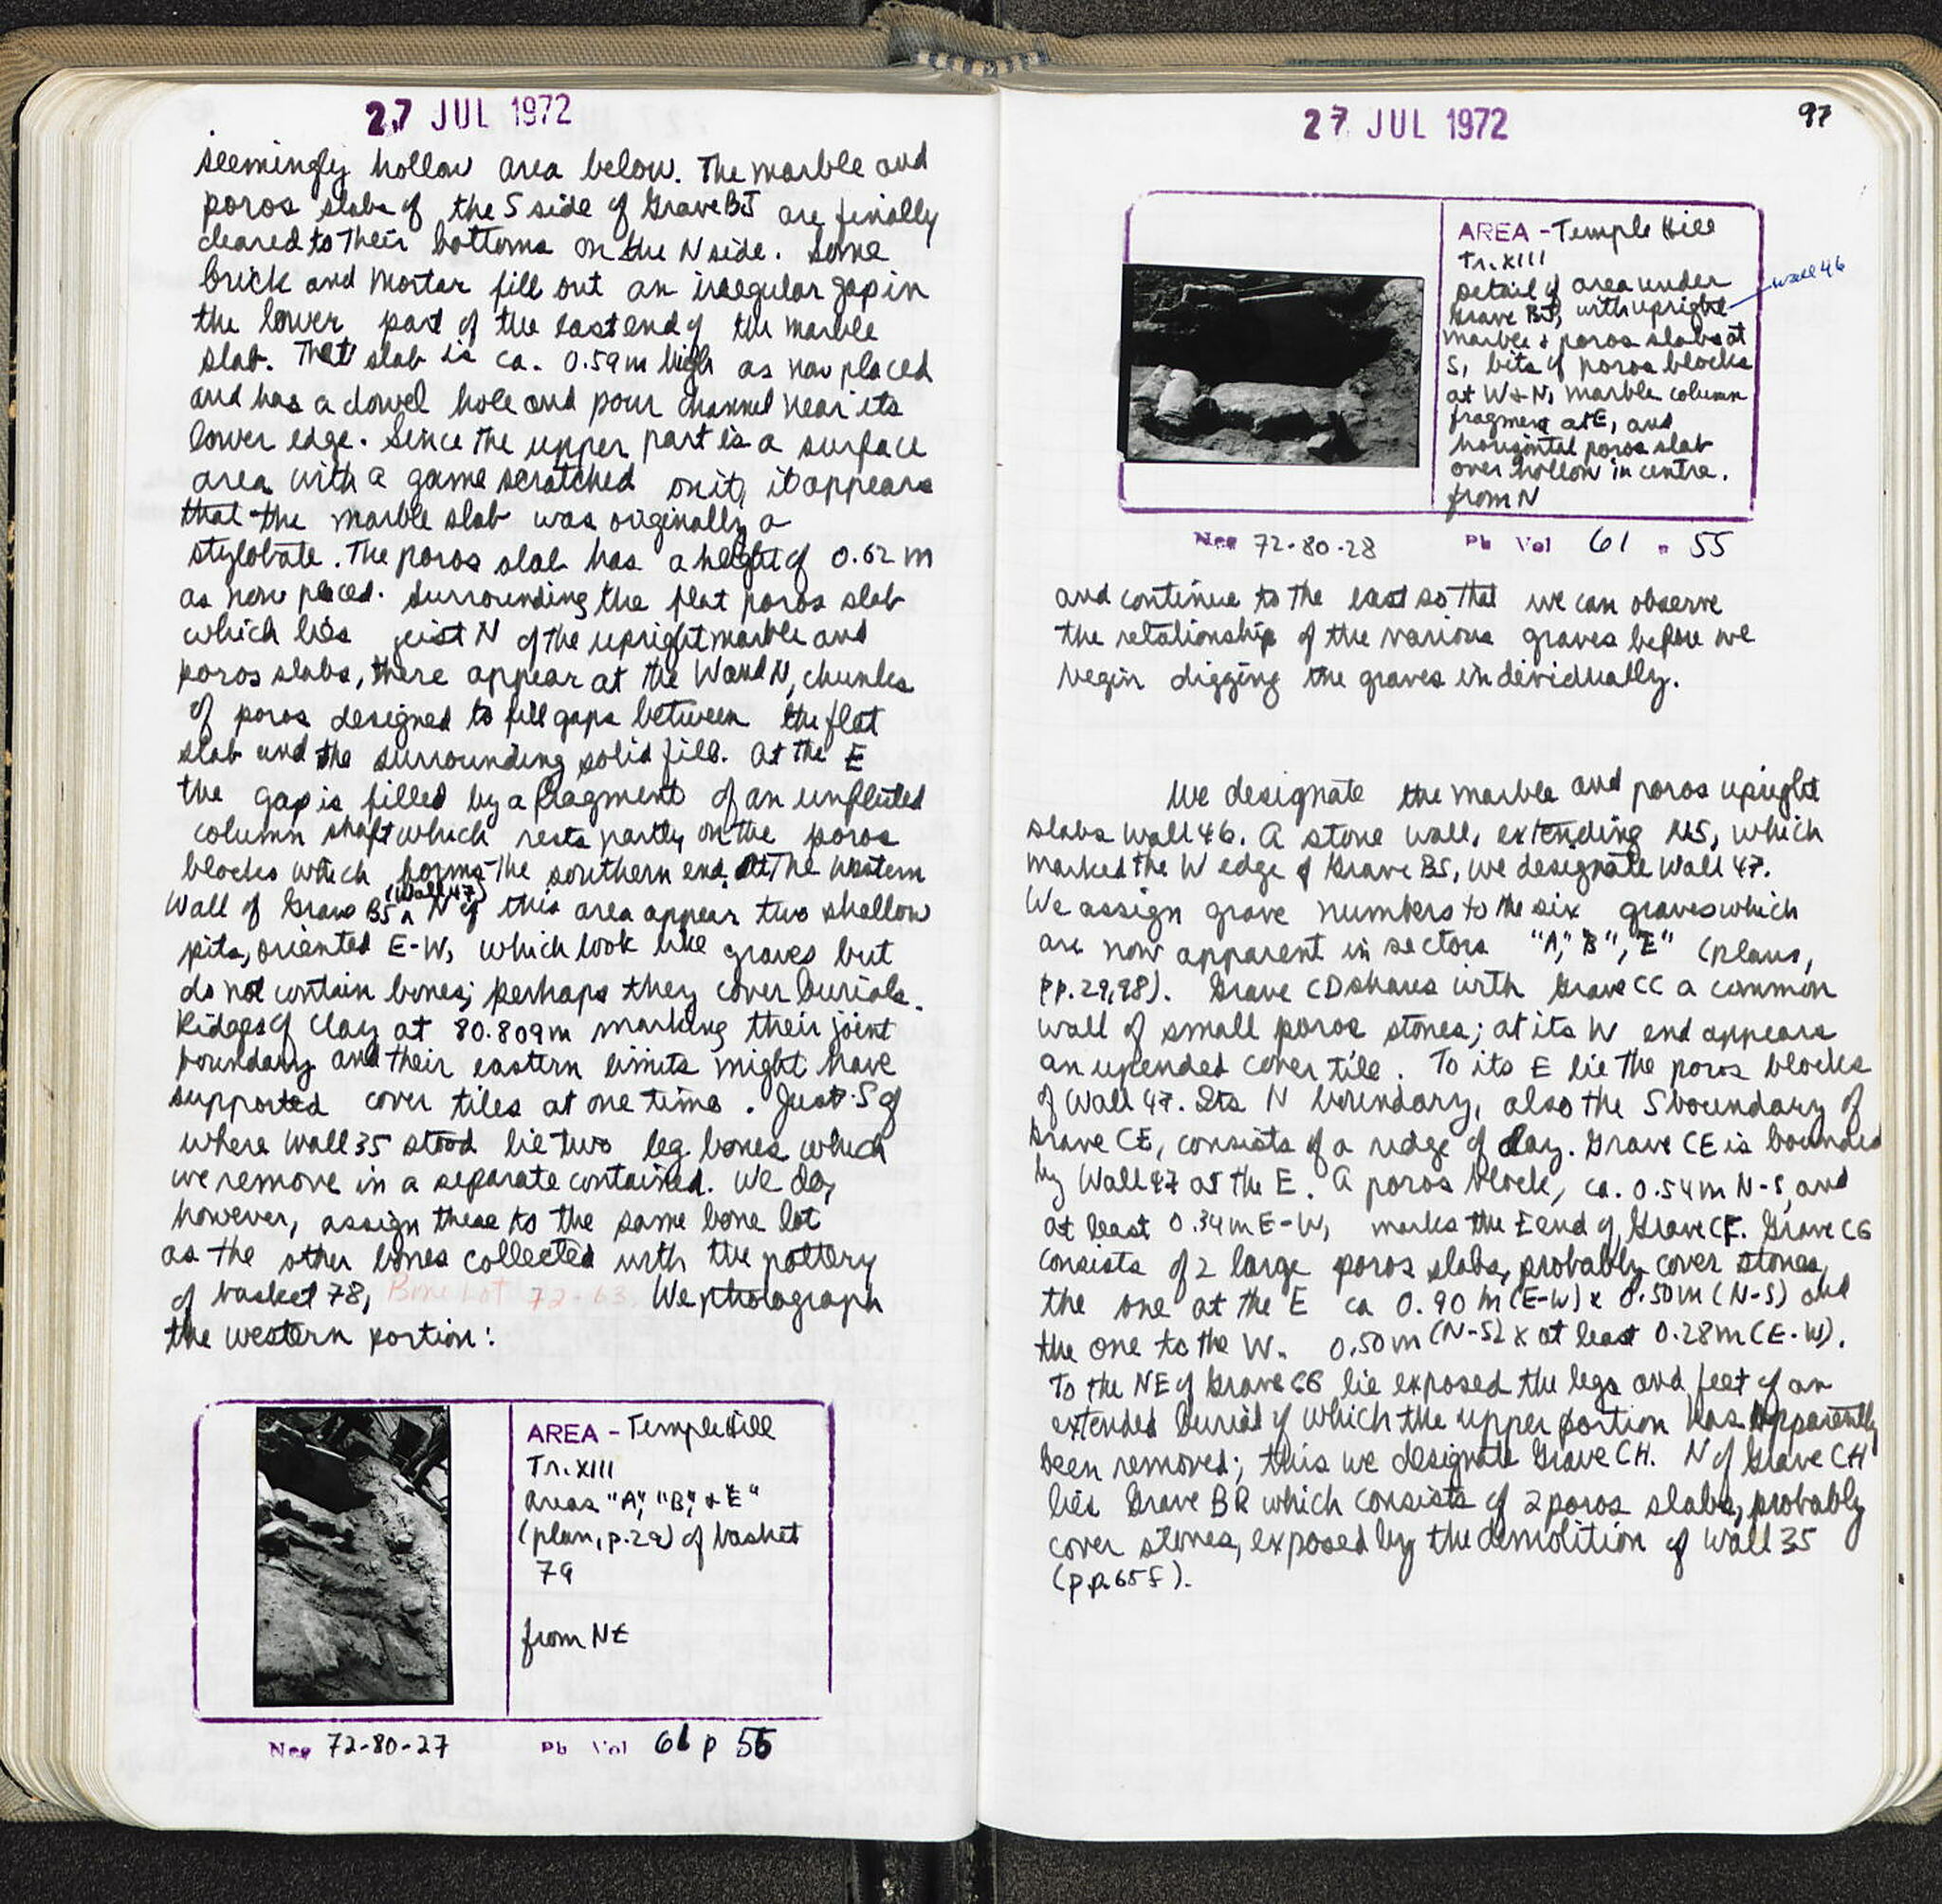 27 JUL 1972
seemingly hollow area below. The marble and
poros slabs of the S side of Grave BJ are finally
cleared to their bottoms on the N side. Some
brick and mortar fill out an irregular gap in
the lower part of the east end of the marble
slab. That slab is ca. 0.59m high as now placed
and has a dowel hole and pour channel near its
lower edge. Since the upper part is a surface
area with a game scratched on it, it appears
that the marble slab was originally a
stylobate. The poros slab has a height of 0.62 m
as now placed. Surrounding the flat poros slab
which lies just N of the upright marble and
poros slabs, there appear at the W and N, chunks
of poros designed to fill gaps between the flat
slab and the surrounding solid fill. At the E
the gap is filled by a fragment of an unfluted
column shaft which rests partly on the poros
blocks which forms the southern end of the western
(Wall 47)
Wall of Grave BJ ^ N of this area appear two shallow
pits, oriented E-W, which look like graves but
do not contain bones; perhaps they cover burials.
Ridges of clay at 80.809m marking their joint
boundary and their eastern limits might have
supported cover tiles at one time. Just S of
where Wall 35 stood lie two leg bones which
we remove in a separate container. We do,
however, assign these to the same bone lot
as the other bones collected with the pottery
of basket 78, Bone Lot 72-63. We photograph
the western portion:
AREA - Temple Hill
Tr. XIII
areas "A", "B", & "E"
(plan, p.29) of basket
79
from NE
Neg 72-80-27 Ph Vol 61 p 55
27 JUL 1972
97
AREA - Temple Hill
Tr. XIII
Detail of area under
Grave BJ, with upright
wall 46
marble & poros slabs at
S, bits of poros blocks
at W & N, marble column
fragment at E, and
horizontal poros slab
over hollow in centre.
from N
Neg 72-80-28 Ph Vol 61 p 55
and continue to the east so that we can observe
the relationship of the various graves before we
begin digging the graves individually.
We designate the marble and poros upright
slabs Wall 46. A stone wall, extending NS, which
marked the W edge of Grave BJ, we designate Wall 47.
We assign grave numbers to the six graves which
are now apparent in sectors "A", "B", "E" (plans,
pp. 29, 98). Grave CD shares with Grave CC a common
wall of small poros stones; at its W end appears
an upended cover tile. To its E lie the poros blocks
of Wall 47. Its N boundary, also the S boundary of
Grave CE, consists of a ridge of clay. Grave CE is bounded
by Wall 47 at the E. A poros block, ca. 0.54m N-S, and
at least 0.34m E-W, marks the E end of Grave CF. Grave CG
consists of 2 large poros slabs, probably cover stones,
the one at the E ca 0.90 m (E-W) x 0.50m (N-S) and
the one to the W. 0.50m (N-S) x at least 0.28m (E-W).
To the NE of Grave CG lie exposed the legs and feet of an
extended burial of which the upper portion has apparently
been removed; this we designate Grave CH. N of Grave CH
lies Grave BR which consists of 2 poros slabs, probably
cover stones, exposed by the demolition of Wall 35
(pp. 65 f).